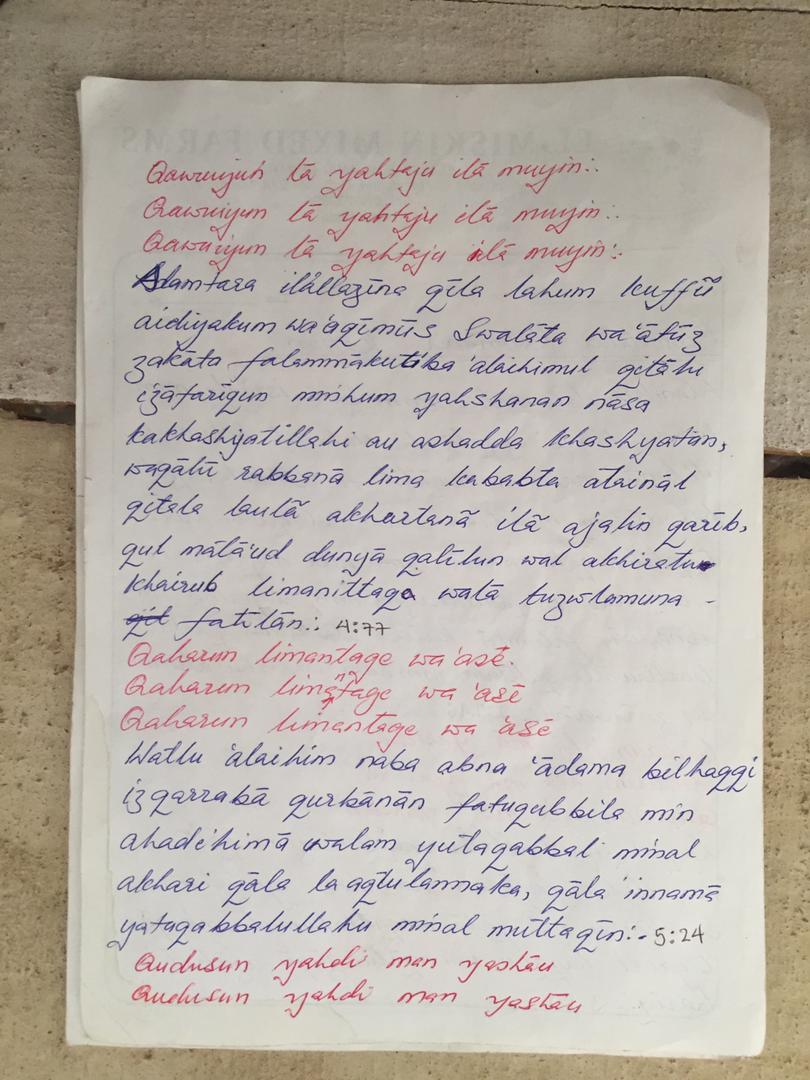 EL-MISKIN MIXED FARMS
Qawuiyun lā yahtaju ilā muyin:.
Qawuiyun lā yahtaju ilā muyin:.
Qawuiyun lā yahtaju ilā muyin:.
Alamtara ilāllazīna qīla lahum kuffū
aidiyakum wa'aqīmūs Swalāta wa'ātūz
zakāta falammākutiba 'alaihimul qitālu
izāfarīqun minhum yahshanan nāsa
kakhashyatillahi au ashadda khashyatan,
waqālū rabbanā lima kababta ataināl
qitala laulā akhartanā ilā ajalin qarīb,
qul mātā'ud dunyā qalīlun wal akhiratu
khairub limanittaqa walā tuzwlamuna -
fatīlān:. 4:77
Qaharun limantage wa 'asē.
Qaharun limantage wa 'asē
Qaharun limantage wa 'asē
Watlu 'alaihim naba abna 'ādama bilhaqqi
izqarrabā qurbānān fatuqubbila min
ahadihimā walam yutaqabbal minal
akhari qāla la aqtulannaka, qāla 'innamā
yataqabbalullahu minal muttaqīn:- 5:24
Qudusun yahdi man yashāu
Qudusun yahdi man yashāu